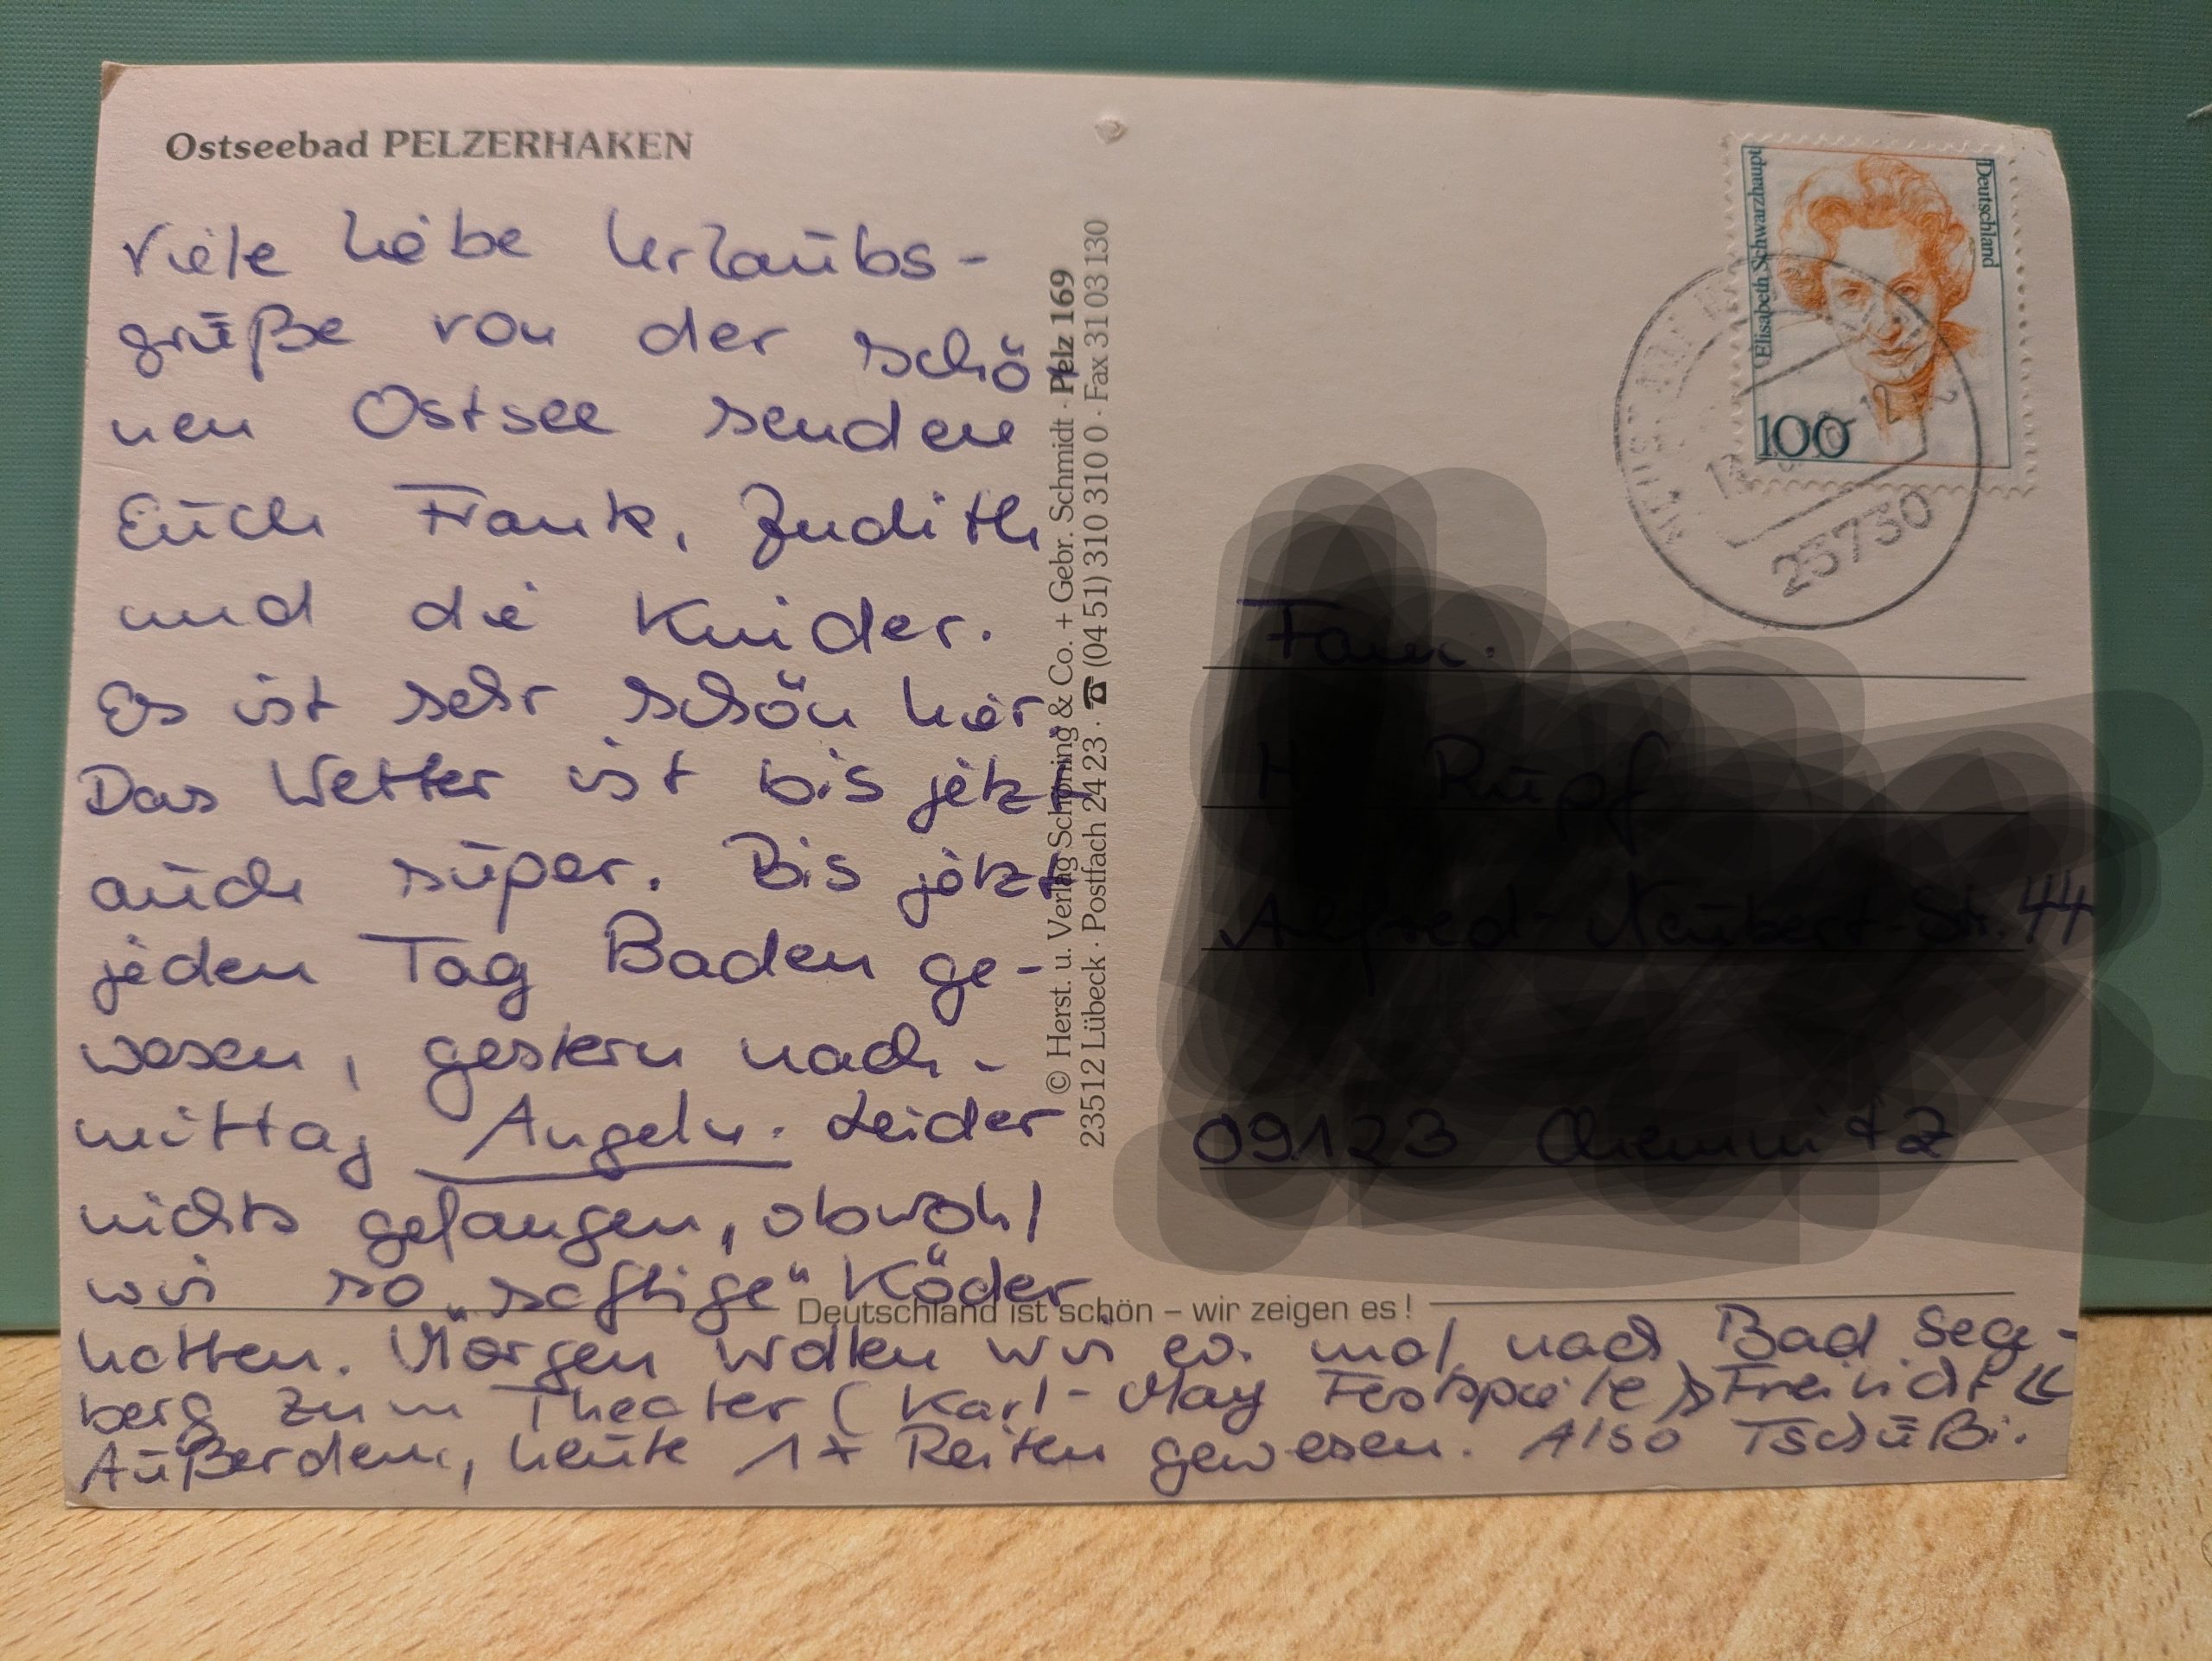 Ostseebad PELZERHAKEN
Viele liebe Urlaubs-
grüße von der schö-
nen Ostsee senden
Euch Frank, Judith
und die Kinder.
Es ist sehr schön hier
Das Wetter ist bis jetzt
auch super. Bis jetzt
jeden Tag Baden ge-
wesen, gestern nach-
mittag Angeln. Leider
nichts gefangen, obwohl
wir so „saftige“ Köder
hatten. Morgen wollen wir ev. mal nach Bad Sege-
berg zum Theater (Karl-May Festspiele)
Außerdem, heute 1x Reiten gewesen. Also Tschüßi.
© Herst. u. Verlag Schöning & Co. + Gebr. Schmidt · Pelz 169
23512 Lübeck · Postfach 24 23 · ☎ (04 51) 310 310 0 · Fax 31 03 130
Deutschland ist schön – wir zeigen es!
Deutschland
Elisabeth Schwarzhaupt
100
23730